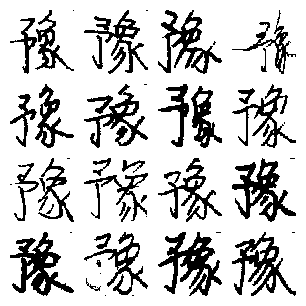 豫豫豫豫
豫豫豫豫
豫豫豫豫
豫豫豫豫